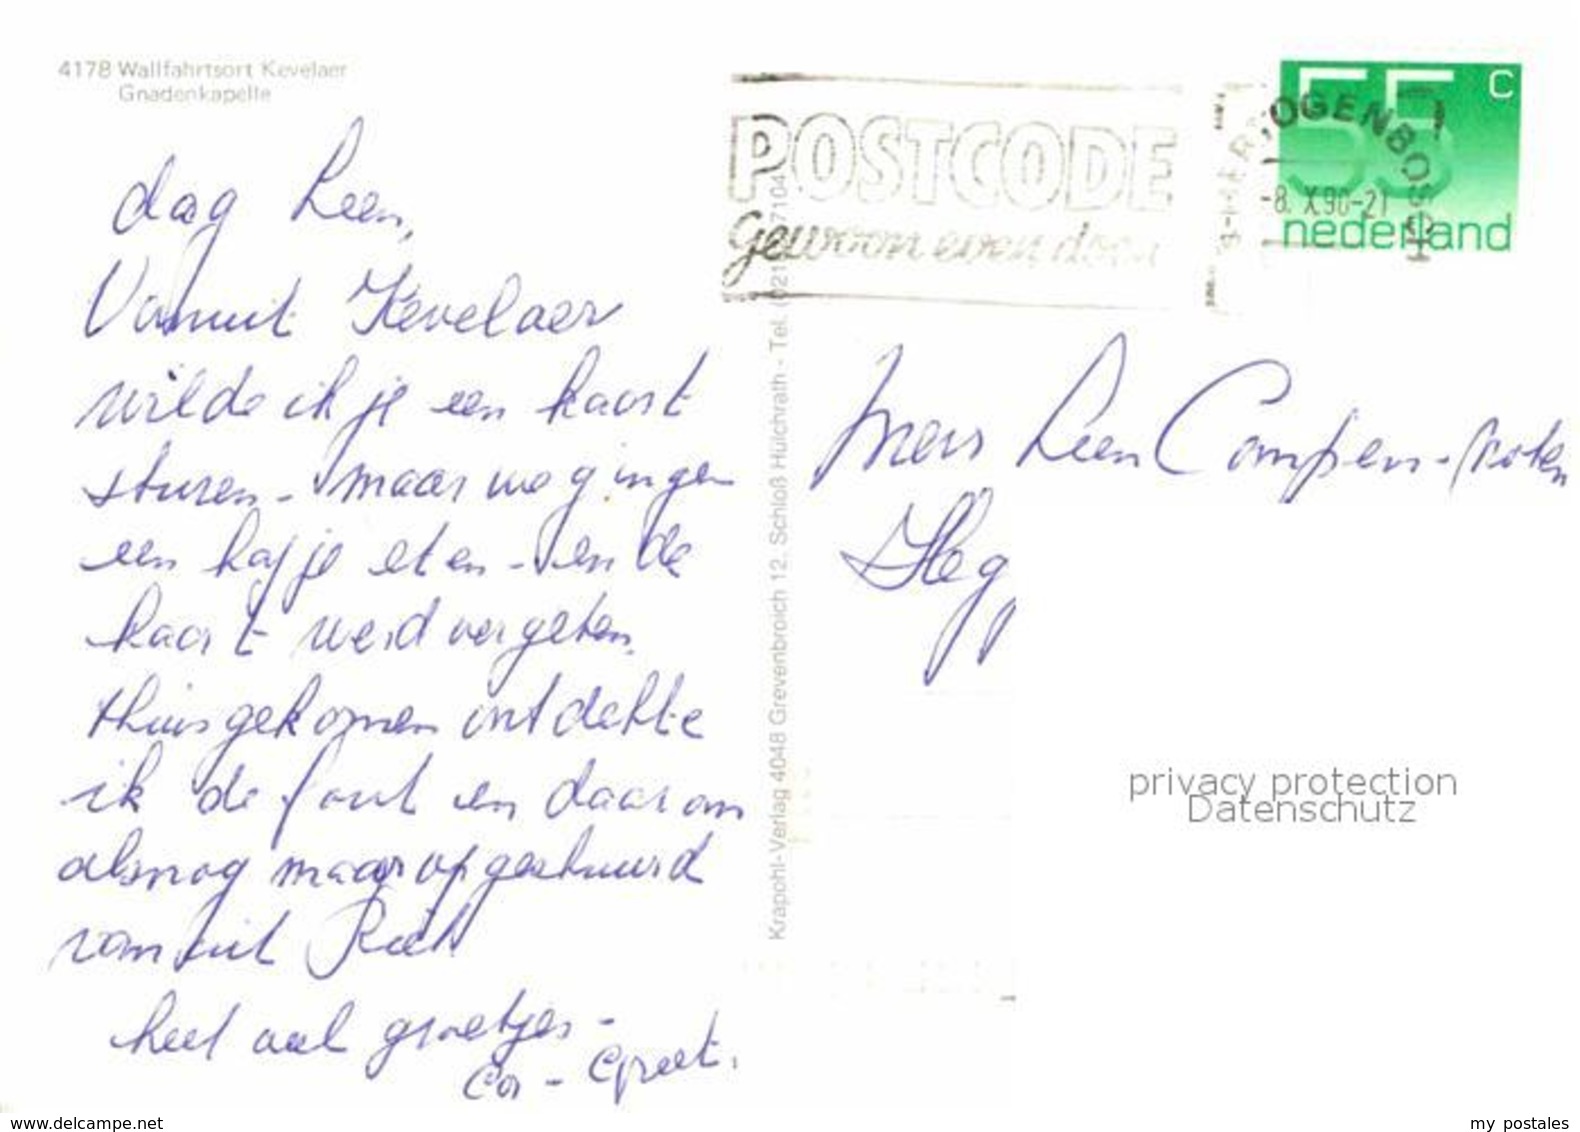 4178 Wallfahrtsort Kevelaer
Gnadenkapelle
dag Leen,
Vanuit Kevelaer
wilde ik je een kaart
sturen - maar we gingen
een hapje eten - en de
kaart werd vergeten.
thuisgekomen ontdekte
ik de fout en daarom
alsnog maar opgestuurd
vanuit
heel veel groetjes -
Cor - Greet.
Krapohl-Verlag 4048 Grevenbroich 12, Schloß Hülchrath - Tel.
POSTCODE
Gewoon even doen
OGENBOSCH
-8.X.90-21
55 c
nederland
Leen Compen -
privacy protection
Datenschutz
www.delcampe.net
my postales